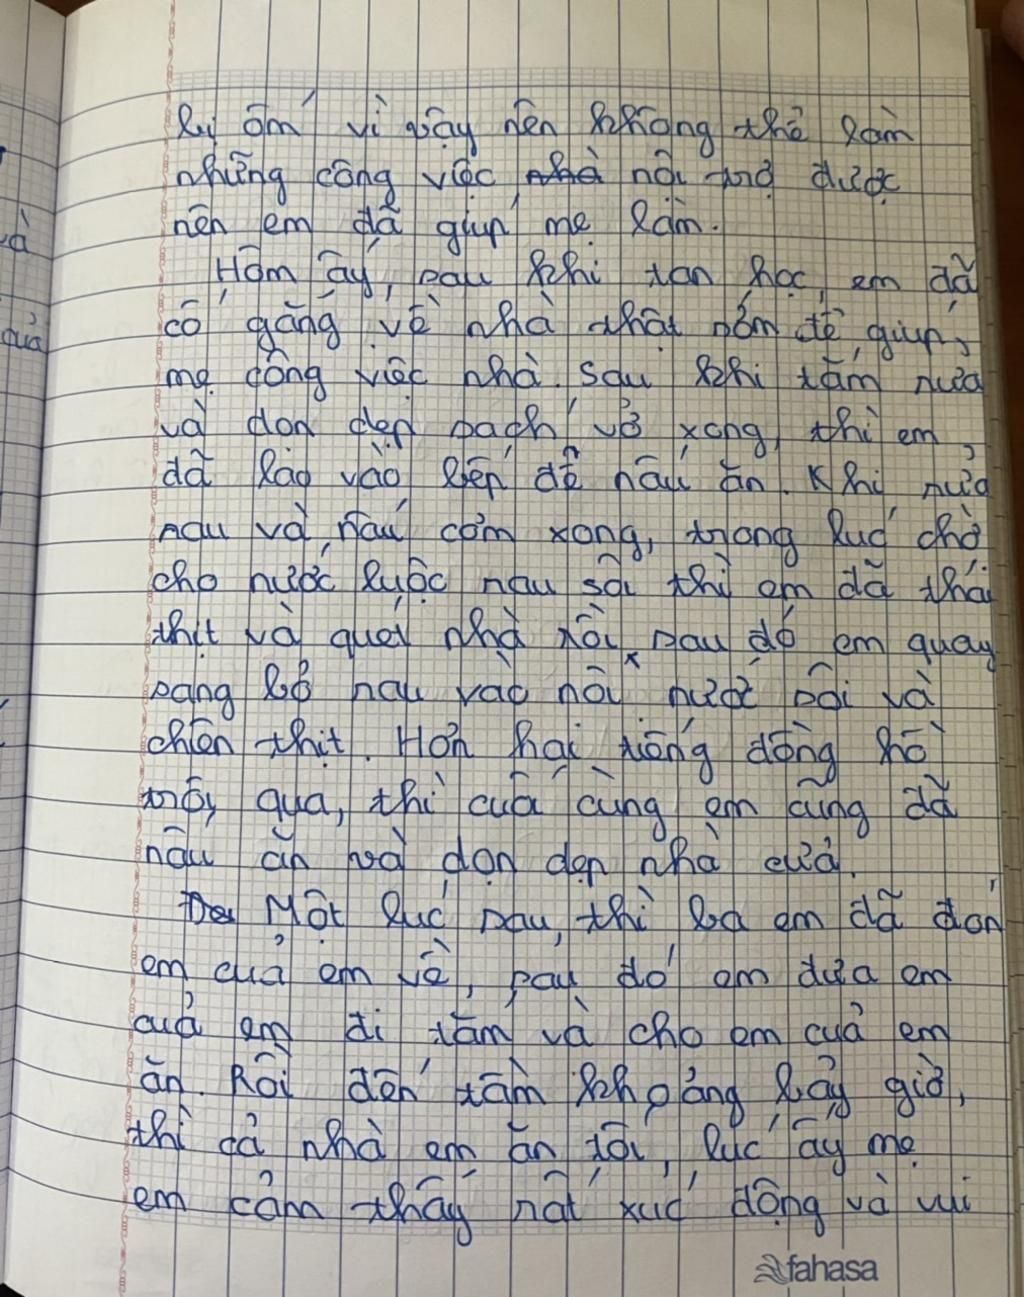 bị ốm vì vậy nên không thể làm
những công việc nhà nội trợ được
nên em đã giúp mẹ làm.
Hôm ấy, sau khi tan học, em đã
cố gắng về nhà thật sớm để giúp
mẹ công việc nhà. Sau khi tắm rửa
và dọn dẹp sạch sẽ xong, thì em
đã lao vào bếp để nấu ăn. Khi rửa
rau và nấu cơm xong, trong lúc chờ
cho nước luộc rau sôi thì em đã thái
thịt và quét nhà rồi sau đó em quay
sang bỏ rau vào nồi nước sôi và
chiên thịt. Hơn hai tiếng đồng hồ
trôi qua, thì cuối cùng em cũng đã
nấu ăn và dọn dẹp nhà cửa.
Một lúc sau, thì ba em đã đón
em của em về, sau đó em đưa em
của em đi tắm và cho em của em
ăn. Rồi đến tầm khoảng bảy giờ,
thì cả nhà em ăn tối, lúc ấy mẹ
em cảm thấy rất xúc động và vui
fahasa
và
quả